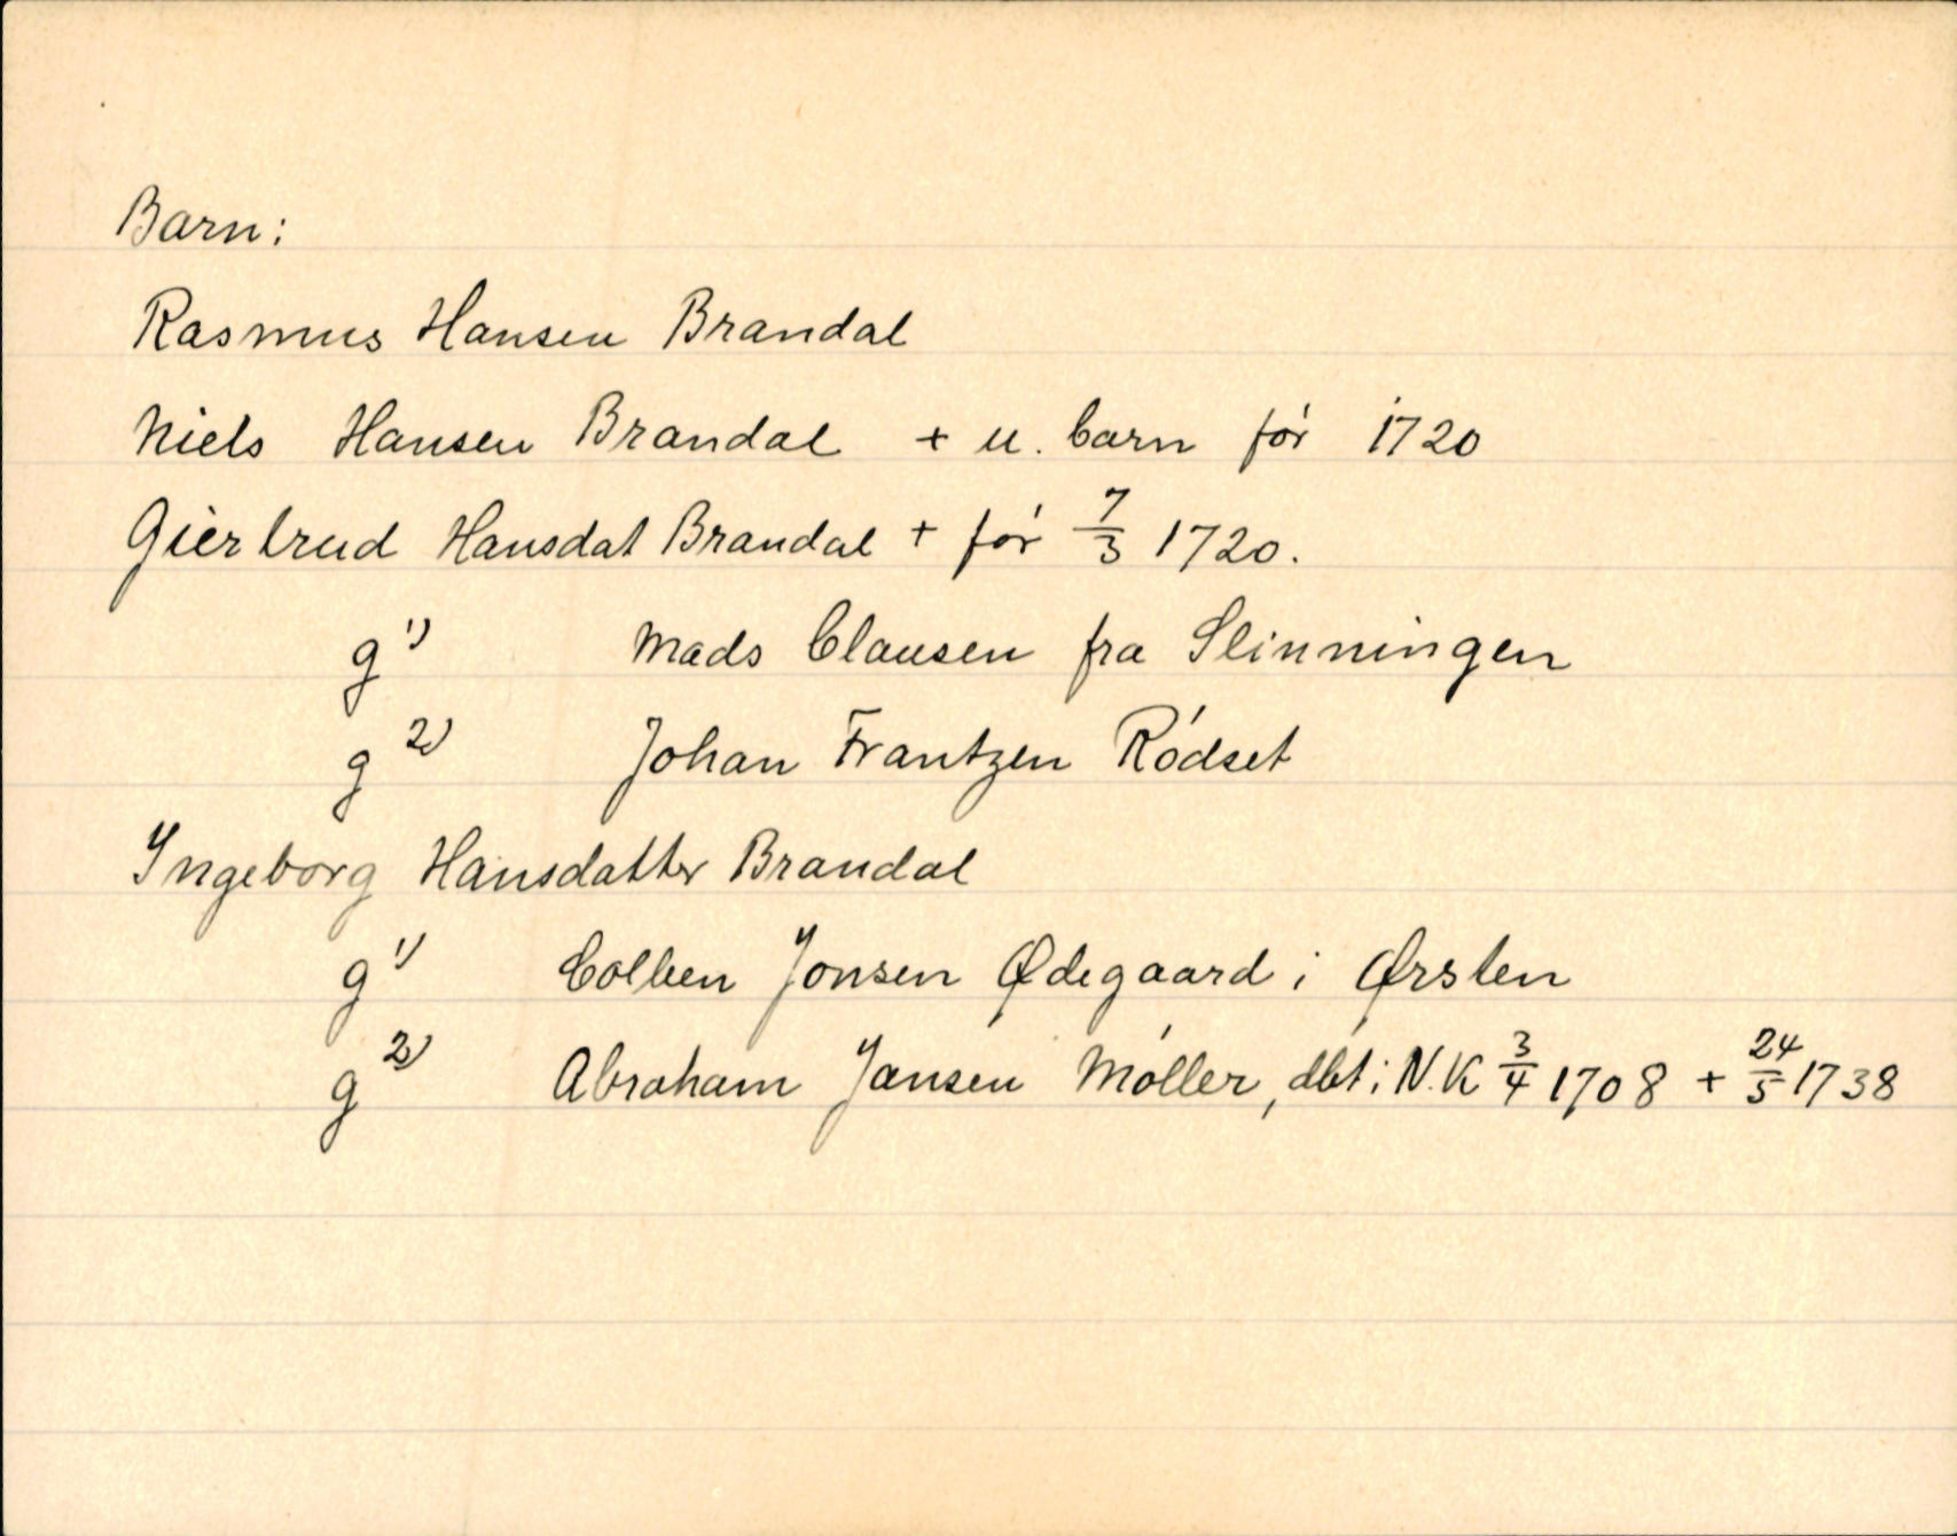 Barn:
Rasmus Hansen Brandal
Niels Hansen Brandal + u. barn før 1720
Giertrud Hansdat Brandal + før 7/3 1720.
g 1) Mads Clausen fra Slinningen
g 2) Johan Frantzen Rødset
Ingeborg Hansdatter Brandal
g 1) Colben Jonsen Ødegaard i Ørsten
g 2) Abraham Jansen Møller, dbt i N.K 3/4 1708 + 24/5 1738